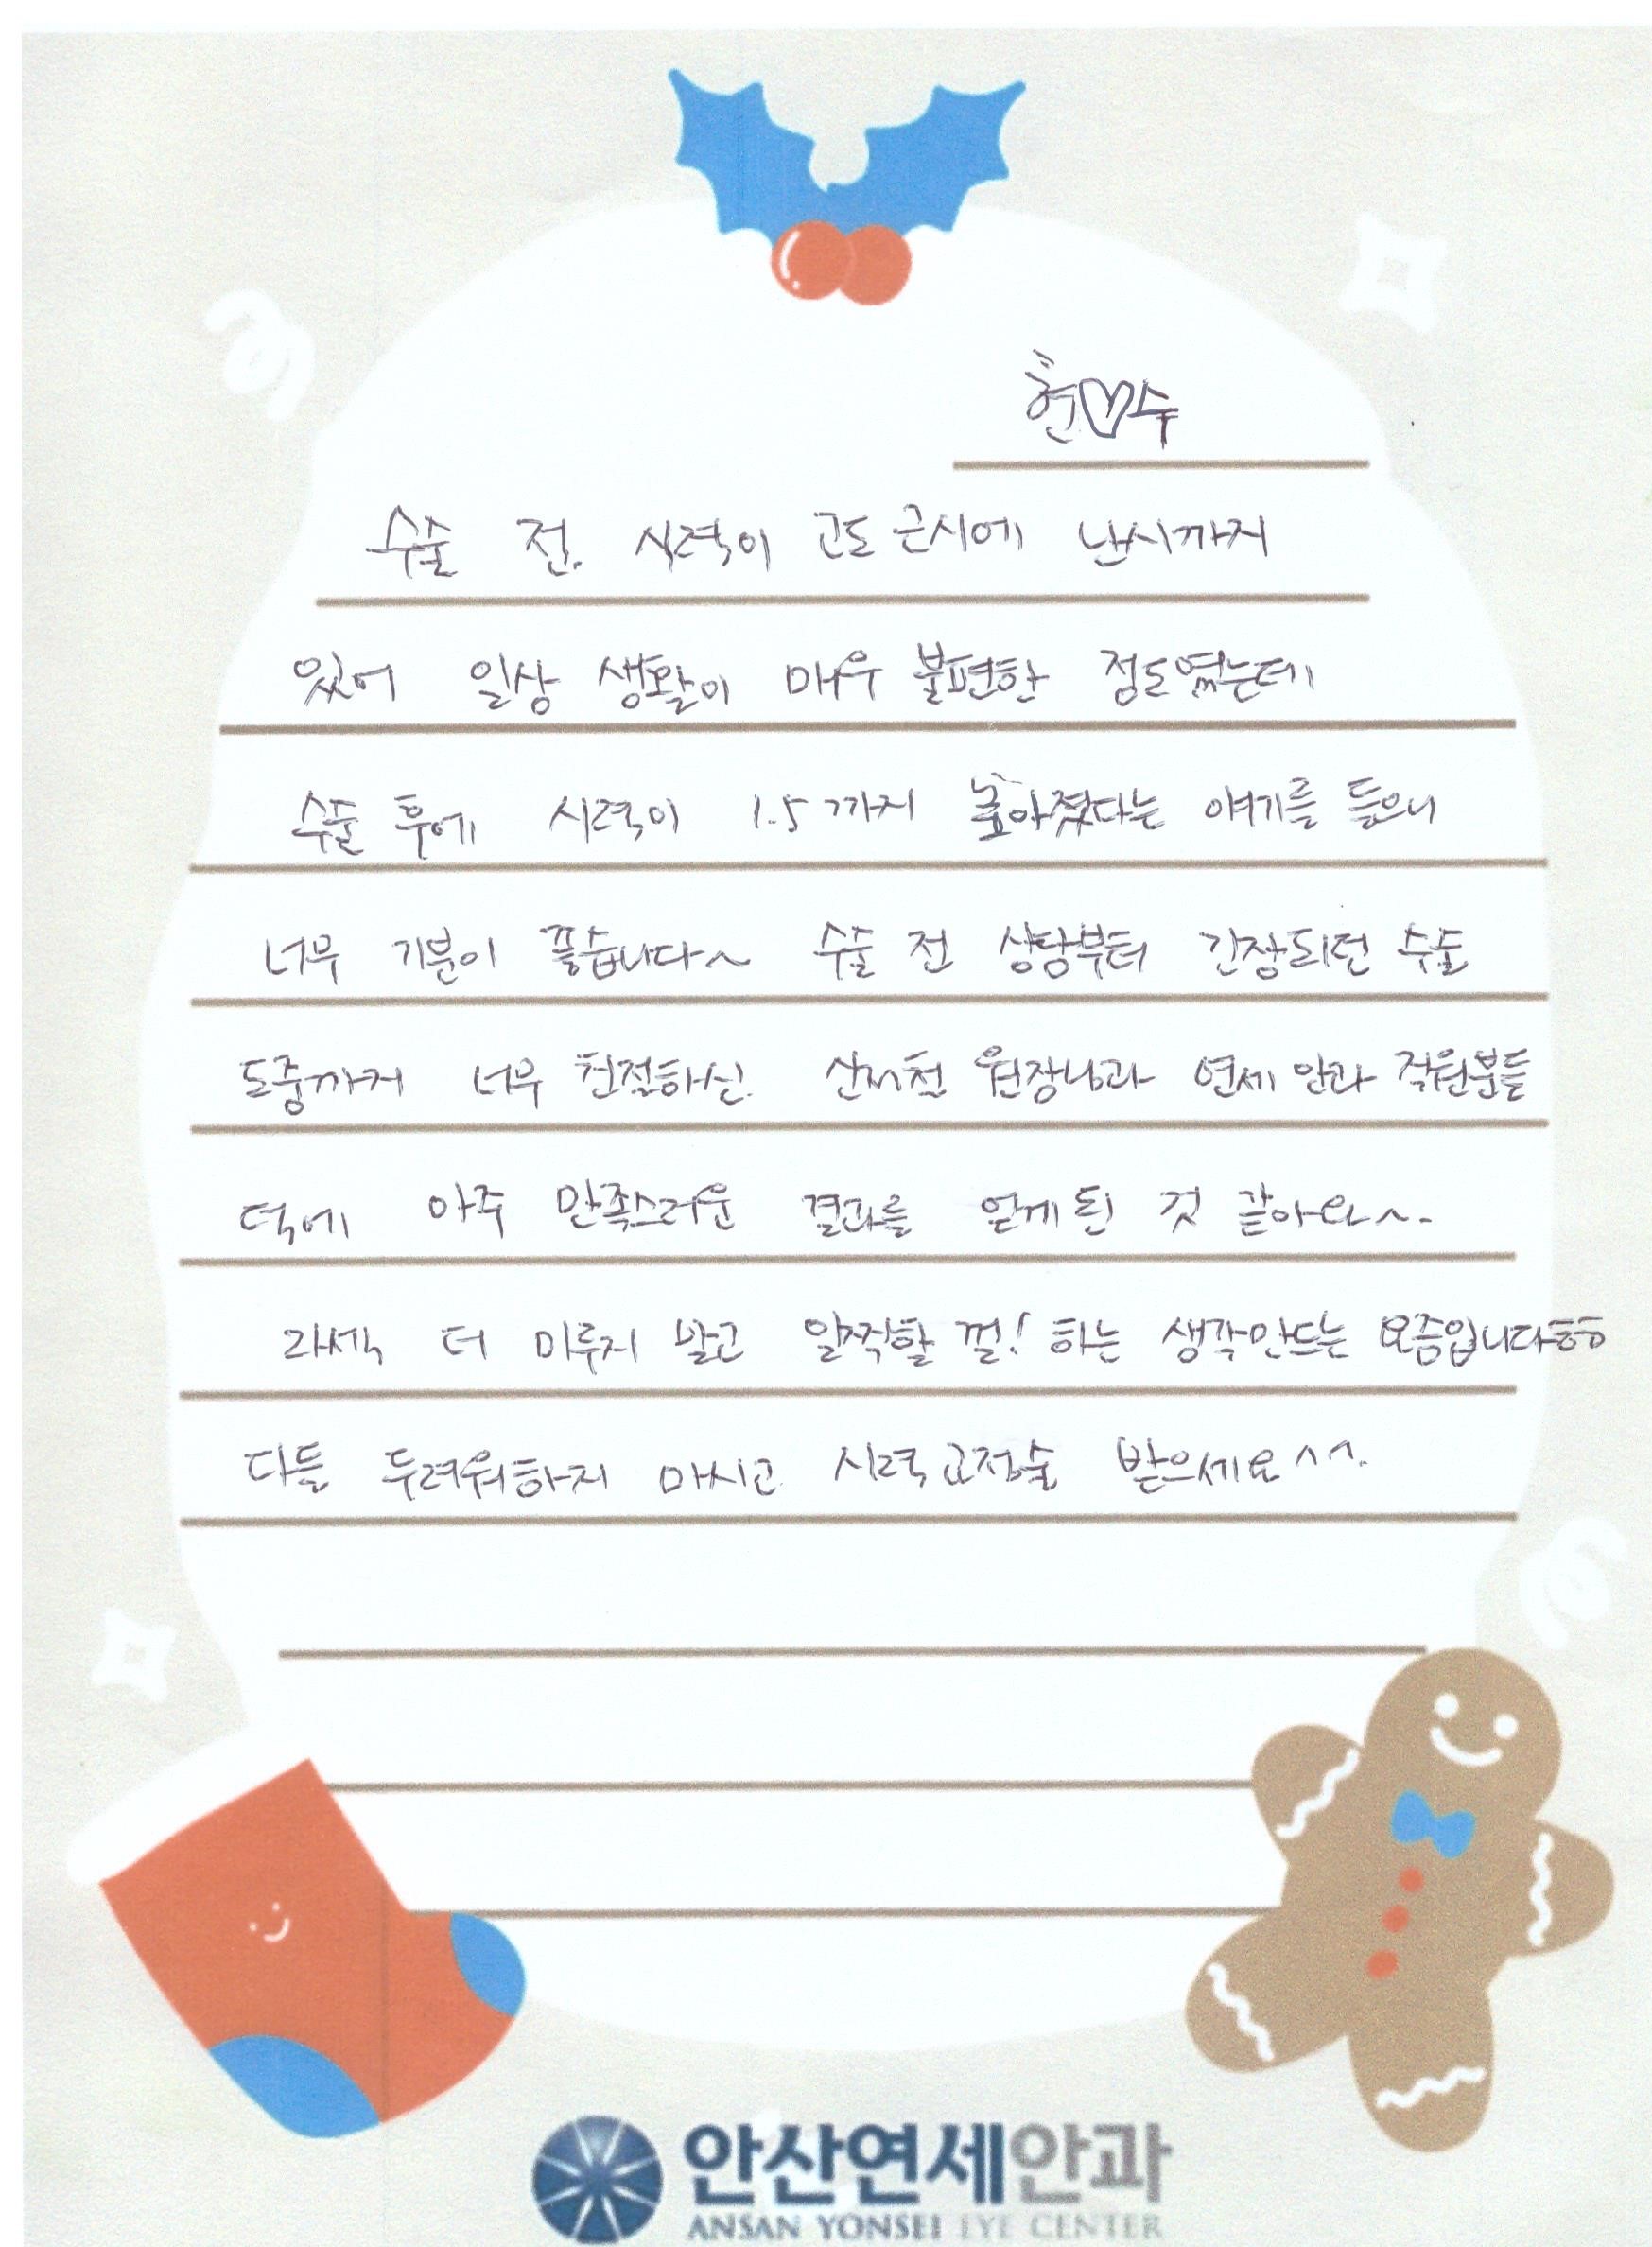 현♡수
수술 전. 시력이 고도 근시에 난시까지
있어 일상 생활이 매우 불편한 정도였는데
수술 후에 시력이 1.5까지 높아졌다는 얘기를 들으니
너무 기분이 좋습니다~ 수술 전 상담부터 긴장되던 수술
도중까지 너무 친절하신 원장님과 연세 안과 직원분들
덕에 아주 만족스러운 결과를 얻게 된 것 같아요~.
라섹 더 미루지 말고 일찍할 껄! 하는 생각만드는 요즘입니다ㅎㅎ
다들 두려워하지 마시고 시력교정술 받으세요^^.
안산연세안과
ANSAN YONSEI EYE CENTER